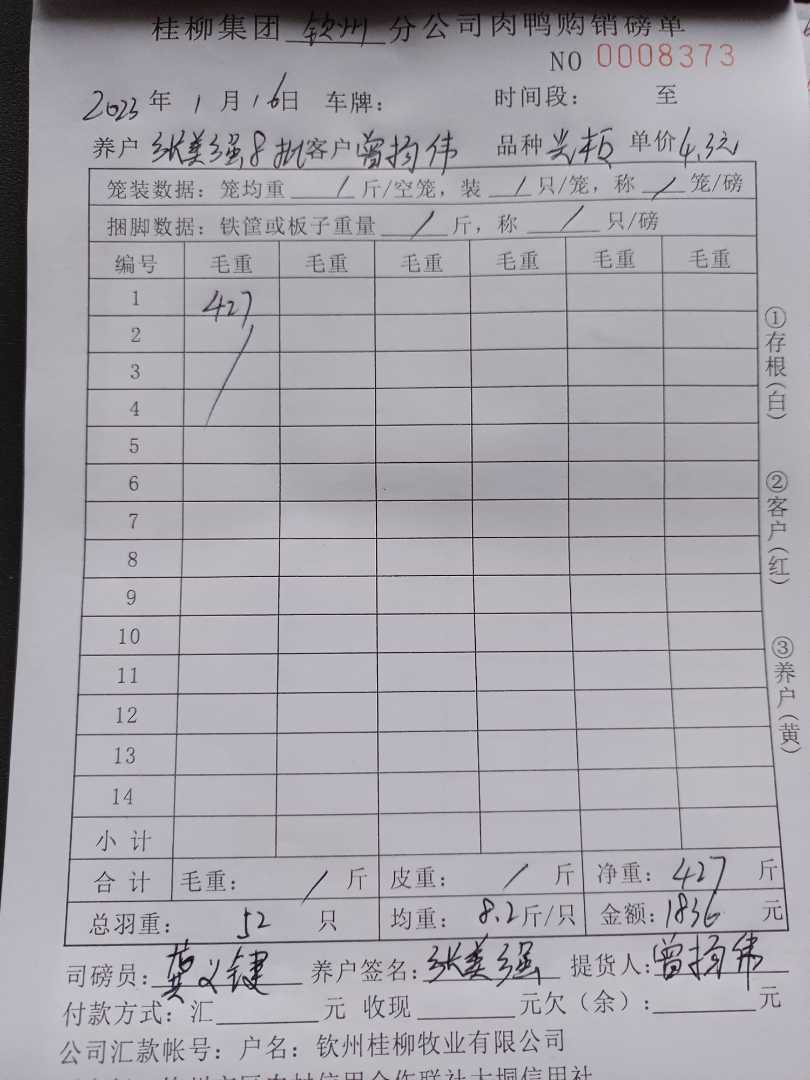 桂柳集团 钦州 分公司肉鸭购销磅单
NO 0008373
2023 年 1 月 16 日 车牌: 时间段: 至
养户 张美强8批 客户 曾扬伟 品种 单价 4.3元
笼装数据: 笼均重 / 斤/空笼, 装 / 只/笼, 称 / 笼/磅
捆脚数据: 铁筐或板子重量 / 斤, 称 / 只/磅
编号 毛重 毛重 毛重 毛重 毛重 毛重
1 427
2
3
4
5
6
7
8
9
10
11
12
13
14
小 计
合 计 毛重: / 斤 皮重: / 斤 净重: 427 斤
总羽重: 52 只 均重: 8.2 斤/只 金额: 1836 元
司磅员: 龚义键 养户签名: 张美强 提货人: 曾扬伟
付款方式: 汇 元 收现 元欠(余): 元
公司汇款帐号: 户名: 钦州桂柳牧业有限公司
①存根(白)
②客户(红)
③养户(黄)